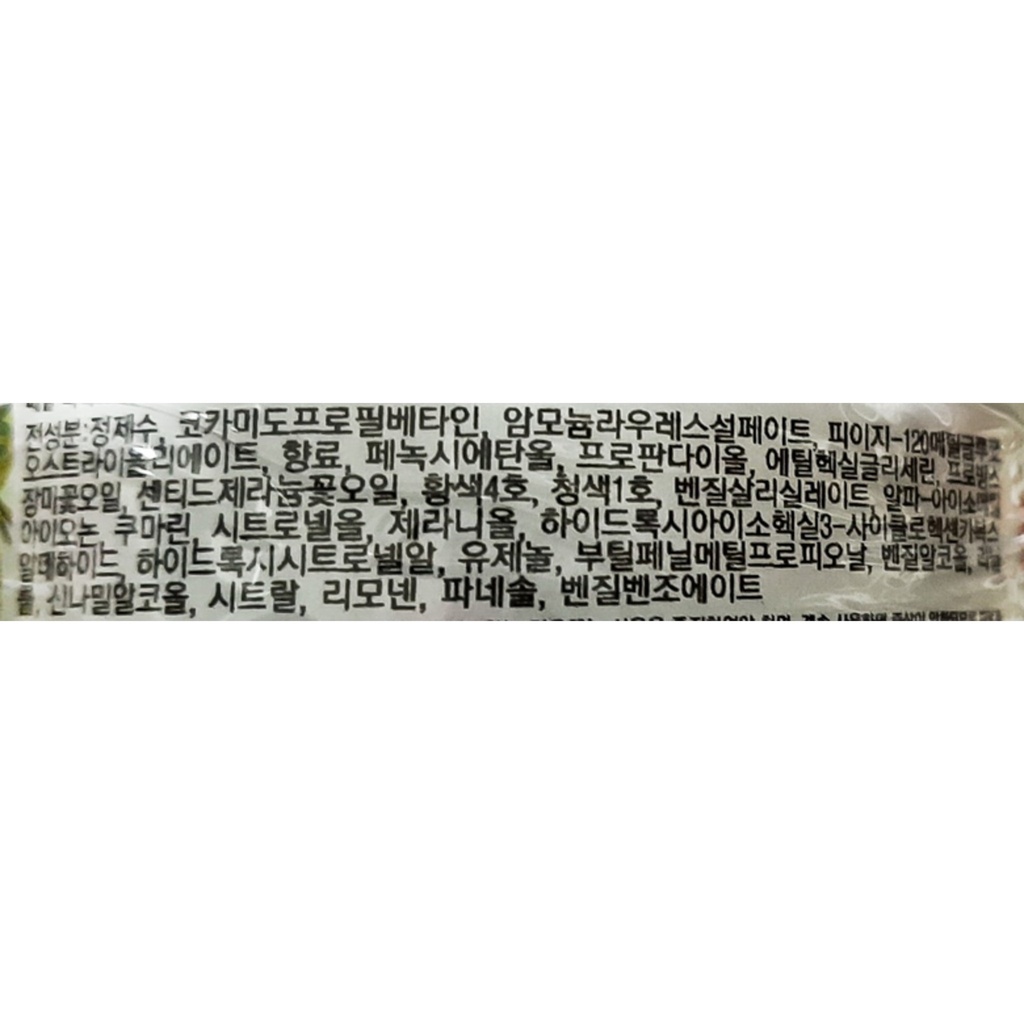 전성분:정제수, 코카미도프로필베타인, 암모늄라우레스설페이트, 피이지-120메틸글루코
오스트라이올리에이트, 향료, 페녹시에탄올, 프로판다이올, 에틸헥실글리세린, 프로방스
장미꽃오일, 센티드제라늄꽃오일, 황색4호, 청색1호, 벤질살리실레이트, 알파-아이소메틸
아이오논, 쿠마린, 시트로넬올, 제라니올, 하이드록시아이소헥실3-사이클로헥센카복스
알데하이드, 하이드록시시트로넬알, 유제놀, 부틸페닐메틸프로피오날, 벤질알코올, 리날
룰, 신나밀알코올, 시트랄, 리모넨, 파네솔, 벤질벤조에이트